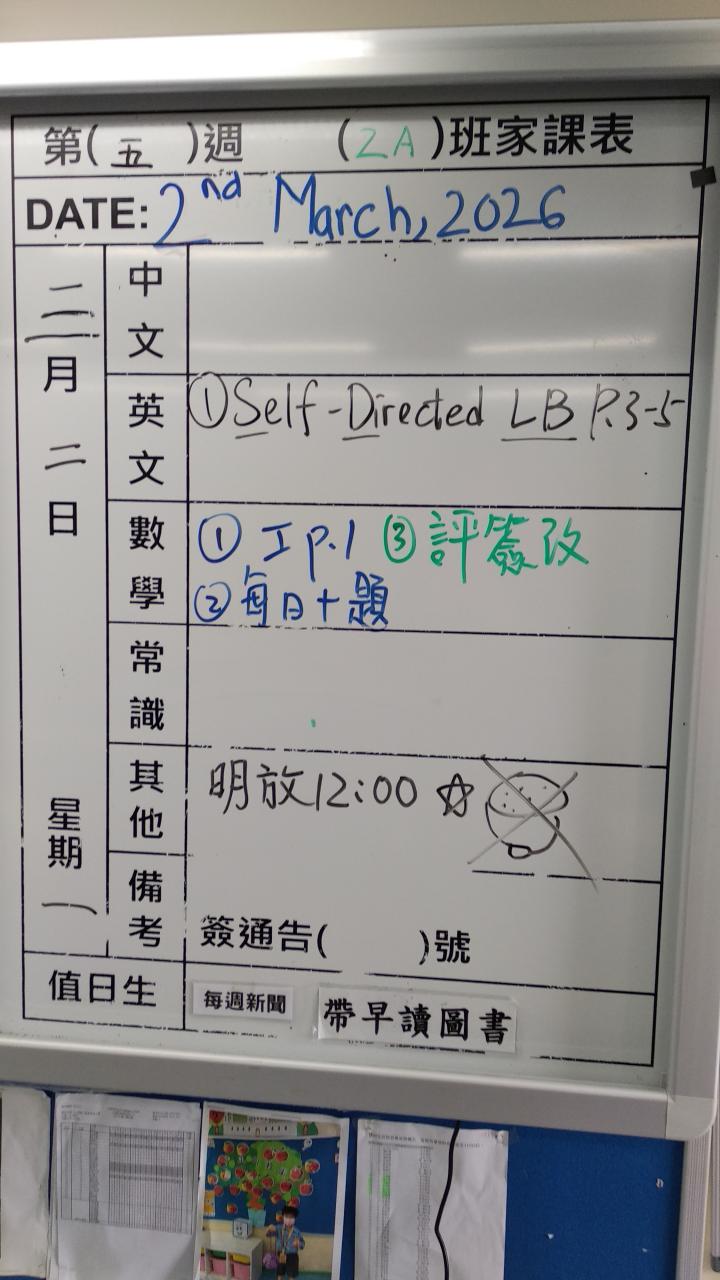 第(五)週 (2A)班家課表
DATE: 2nd March, 2026
三月二日 星期一
中文
英文 ①Self-Directed LB P.3-5
數學 ① 工 p.1 ③評簽改
②每日十題
常識
其他 明放12:00 ☆
備考 簽通告( )號
值日生 每週新聞 帶早讀圖書